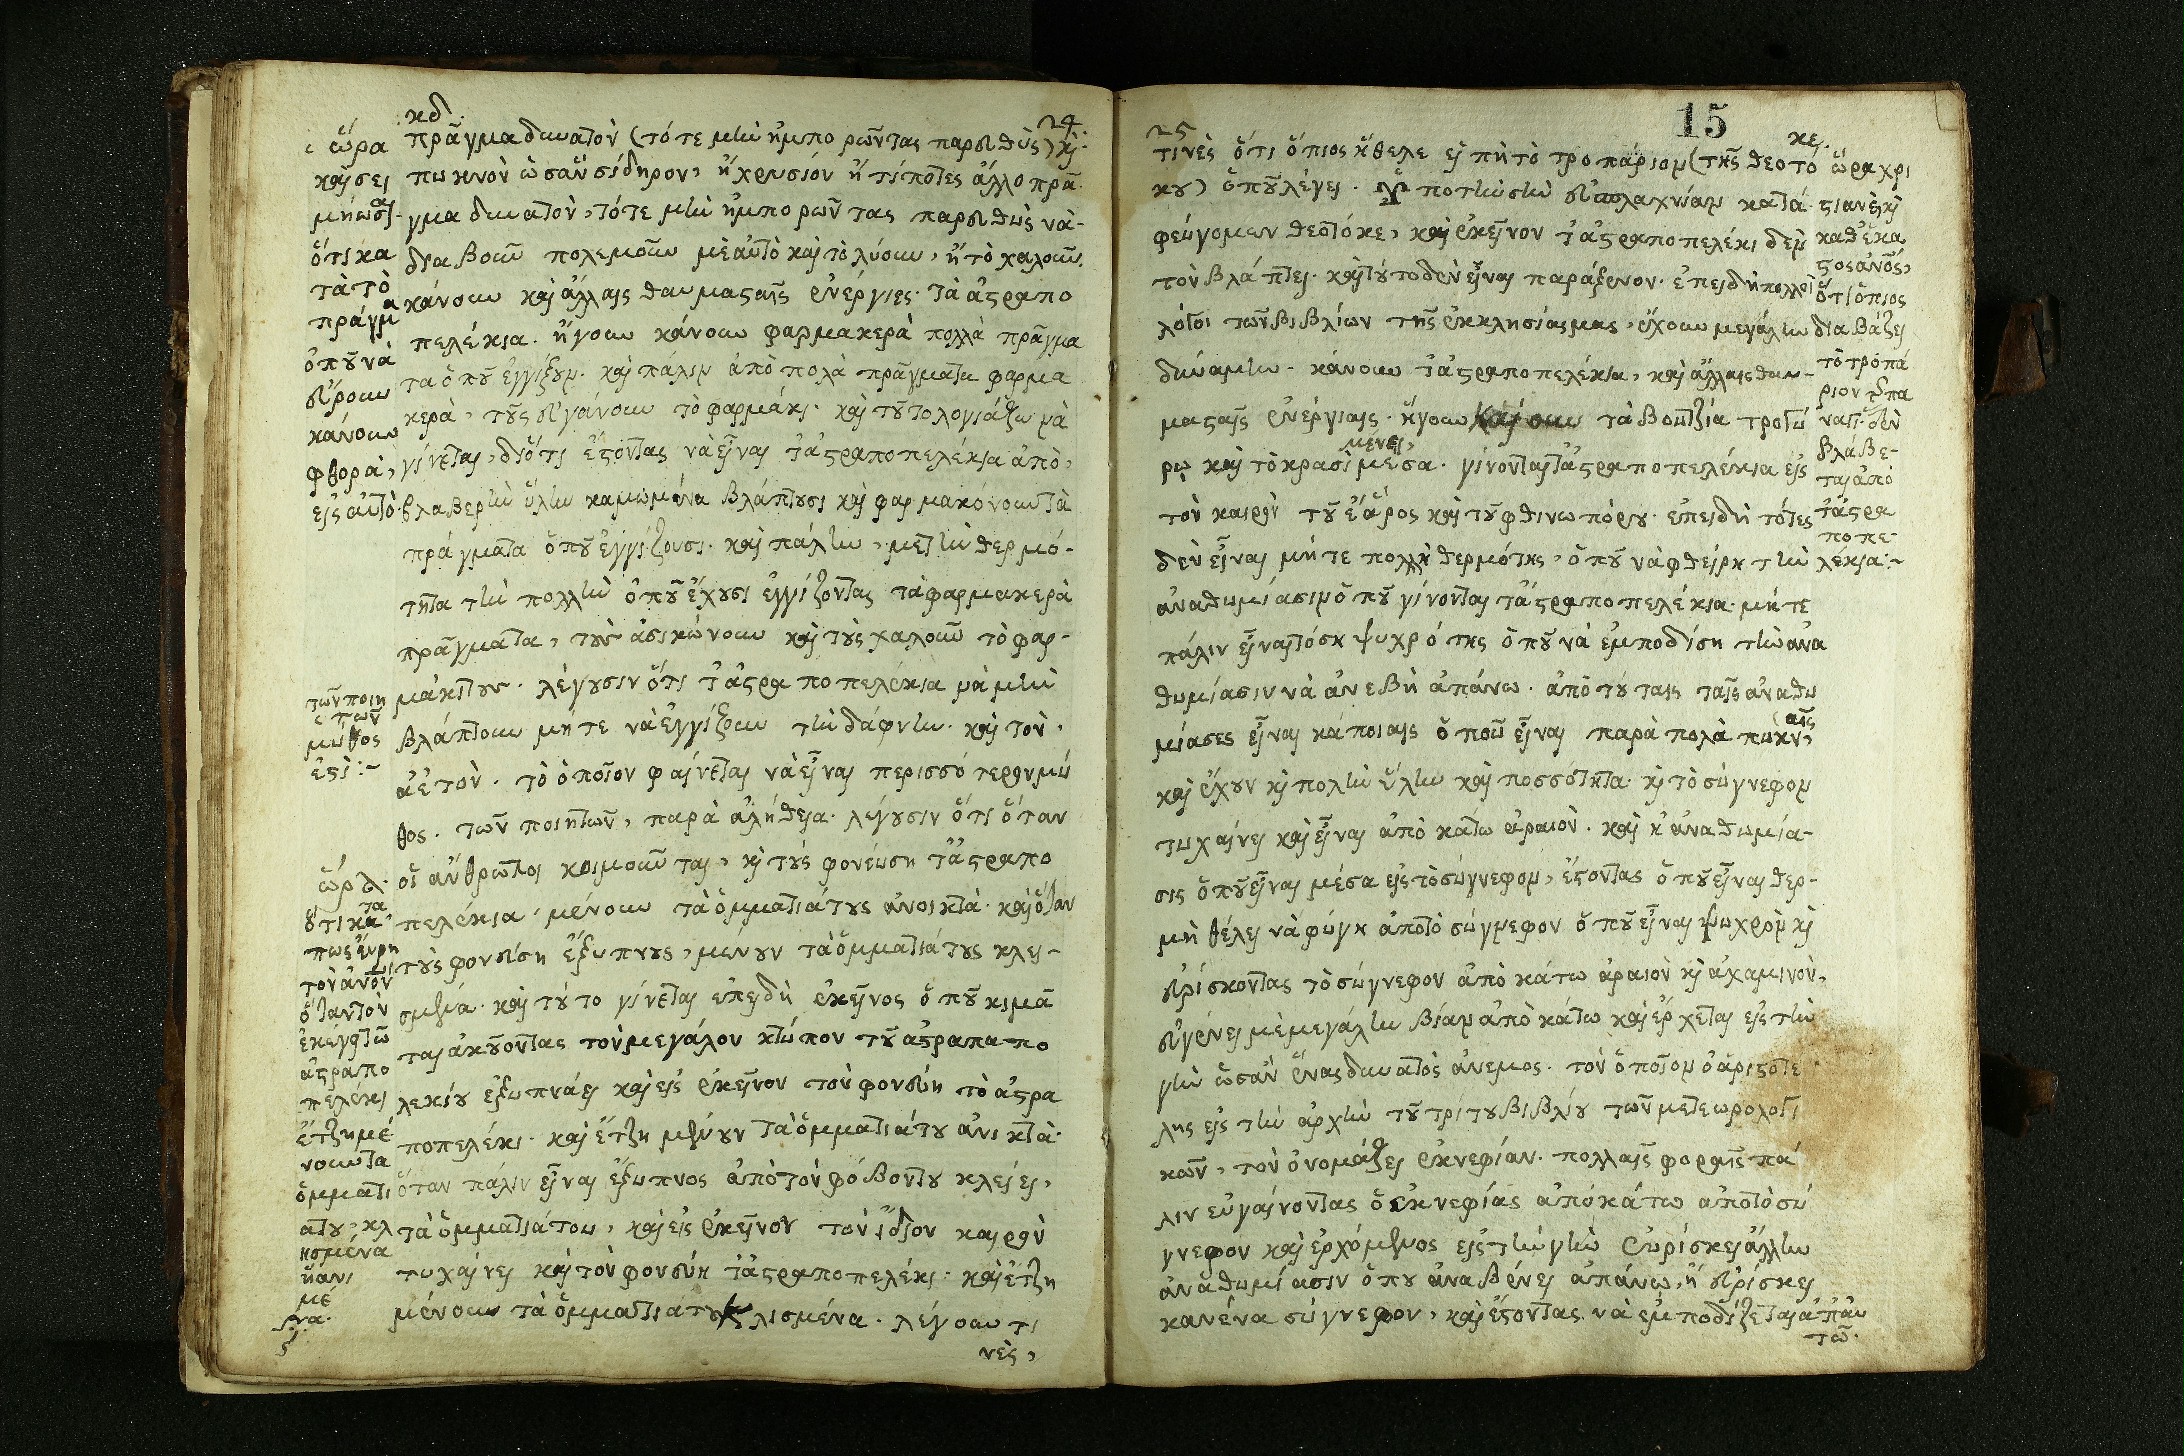 κδ.
24.
πρᾶγμα δυνατὸν (τότε μὴν ἠμπορῶντας παρευθὺς) κὶ
πυκνὸν ὡσὰν σίδηρον, ἢ χρυσίον ἢ τίποτες ἄλλο πρᾶ
γμα δυνατὸν, τότε μὴν ἠμπορῶντας παρευθὺς νὰ
διαβοῦν πολεμοῦν μὲ αὐτὸ καὶ τὸ λύουν, ἢ τὸ χαλοῦν.
κάνουν καὶ ἄλλαις θαυμασταῖς ἐνέργιες τὰ ἀστραπο
πελέκια. ἤγουν κάνουν φαρμακερὰ πολλὰ πρᾶγμα
τα ὁποῦ ἐγγίξουν. καὶ πάλιν ἀπὸ πολὰ πράγματα φαρμα
κερὰ, τοὺς εὐγάνουν τὸ φαρμάκι. καὶ τοῦτο λογιάζω νὰ
γίνεται, διότι ἔστοντας νὰ εἶναι τἀστραποπελέκια ἀπὸ
βλαβερὴν ὕλην καμωμένα βλάπτουσι καὶ φαρμακόνουν τὰ
πράγματα ὁποῦ ἐγγίζουσι. καὶ πάλιν, μὲ τὴν θερμό-
τητα τὴν πολλὴν ὁποῦ ἔχουσι ἐγγίζοντας τὰ φαρμακερὰ
πράγματα, τοὺς ἀσικώνουν καὶ τοὺς χαλοῦν τὸ φαρ-
μάκι τους. λέγουσιν ὅτι τἀστραποπελέκια νὰ μὴν
βλάπτουν μήτε νὰ ἐγγίζουν τὴν δάφνην. καὶ τὸν
ἀετὸν. τὸ ὁποῖον φαίνεται νὰ εἶναι περισσότερον μύ
θος. τῶν ποιητῶν, παρὰ ἀλήθεια. λέγουσιν ὅτι ὅταν
οἱ ἄνθρωποι κοιμοῦνται, κὶ τοὺς φονεύση τἀστραπο
πελέκια, μένουν τὰ ὀμματιά τους ἀνοικτὰ. καὶ ὅταν
τοὺς φονεύση ἔξυπνους, μένουν τὰ ὀμματιά τους κλει-
σμένα. καὶ τοῦτο γίνεται ἐπειδὴ ἐκεῖνος ὁποῦ κιμᾶ
ται ἀκούοντας τὸν μεγάλον κτύπον τοῦ ἀστραπαπο
λεκίου ἐξυπνάει καὶ εἰς ἐκεῖνον τὸν φονεύει τὸ ἀστρα
ποπελέκι. καὶ ἔτζη μένουν τὰ ὀμματιά του ἀνικτὰ.
ὅταν πάλιν εἶναι ἔξυπνος ἀπὸ τὸν φόβον του κλείει,
τὰ ὀμματιά του, καὶ εἰς ἐκεῖνον τὸν ἴδιον καιρὸν
τυχαίνει καὶ τὸν φονεύη τἀστραποπελέκι. καὶ ἔτζη
μένουν τὰ ὀμματιά του κλισμένα. λέγουν τι
νὲς,
ὥρα
ὅτι κα
τὰ τὸ
πράγμα
ὁποῦ νὰ
εὕρουν
κάνουν
φθορὰ,
εἰς αὐτὸ.
τῶν ποιη
τῶν
μύθος
ἐστί:~
ἀστραπο
πελέκι
ἔτζη μέ
νουν τα
ὀμματι
25
15
κε.
τινὲς ὅτι ὅπιος ἤθελε εἰπῆ τὸ τροπάριον (τῆς θεοτό
κου) ὁποῦ λέγει. Ὑπὸ τὴν σὴν εὐσπλαχνίαν κατα
φεύγομεν θεοτόκε, καὶ ἐκεῖνον τἀστραποπελέκι δὲν
τὸν βλάπτει. καὶ τοῦτο δὲν εἶναι παράξενον. ἐπειδὴ πολλοὶ
λόγοι τῶν βιβλίων τῆς ἐκκλησίας μας, ἔχουν μεγάλην
δύναμιν. κάνουν τἀστραποπελέκια, καὶ ἄλλαις θαυ-
μασταῖς ἐνέργιαις. ἤγουν τὰ βουτζία τρογύ
μένει,
ρω καὶ τὸ κρασὶ μέσα. γίνονται τἀστραποπελέκια εἰς
τὸν καιρὸν τοῦ ἔαρος καὶ τοῦ φθινωπόρου. ἐπειδὴ τότες
δὲν εἶναι μήτε πολλὴ θερμότης, ὁποῦ νὰ φθείρη τὴν
ἀναθυμίασιν ὁποῦ γίνονται τἀστραποπελέκια. μήτε
πάλιν εἶναι τόση ψυχρότης ὁποῦ νὰ ἐμποδίση τὴν ἀνα
θυμίασιν νὰ ἀνεβῆ ἀπάνω. ἀπὸ τούταις ταῖς ἀναθυ
μίασες εἶναι κάποιαις ὁποῦ εἶναι παρὰ πολὰ πυκναῖς,
καὶ ἔχουν κὶ πολὴν ὕλην καὶ ποσσότητα. κὶ τὸ σύγνεφον
τυχαίνει καὶ εἶναι ἀπὸ κάτω ἀραιὸν. καὶ ἡ ἀναθυμία-
σις ὁποῦ εἶναι μέσα εἰς τὸ σύγνεφον, ἔστοντας ὁποῦ εἶναι θερ-
μὴ θέλει νὰ φύγη ἀπὸ τὸ σύγνεφον ὁποῦ εἶναι ψυχρὸν κὶ
εὑρίσκοντας τὸ σύγνεφον ἀπὸ κάτω ἀραιὸν κὶ ἀχαμινὸν,
εὐγένει μὲ μεγάλην βίαν ἀπὸ κάτω καὶ ἔρχεται εἰς τὴν
γῆν ὡσὰν ἕνας δυνατὸς ἄνεμος. τὸν ὁποῖον ὁ ἀριστοτέ
λης εἰς τὴν ἀρχὴν τοῦ τρίτου βιβλίου τῶν μετεωρολογι
κῶν, τὸν ὀνομάζει ἐκνεφίαν. πολλαῖς φοραῖς πά
λιν εὐγαίνοντας ὁ ἐκνεφίας ἀπὸ κάτω ἀπὸ τὸ σύ
γνεφον καὶ ἐρχόμενος εἰς τὴν γῆν εὑρίσκει ἄλλην
ἀναθυμίασιν ὁποῦ ἀναβαίνει ἀπάνω, ἢ εὑρίσκει
κανένα σύγνεφον, καὶ ἔστοντας νὰ ἐμποδίζεται ἀπ' αὐ
τῶ.
ὥρα χρι
στιανὲ κὶ
καθ' ἕκα
στος ἀνος,
ὅτι ὅπιος
διαβάζει
τὸ τροπά
ριον
δὲν
βλάβε-
ται ἀπὸ
τἀστρα
ποπε-
λέκια:~